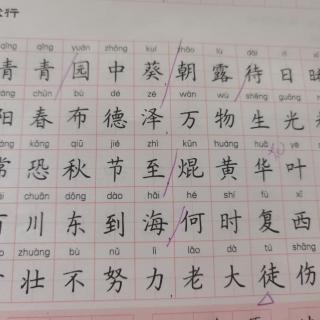 行
qīng qīng yuán zhōng kuí zhāo lù dài rì
青 青 园 中 葵 朝 露 待 日
chūn bù dé zé wàn wù shēng guāng
阳 春 布 德 泽 万 物 生 光
kǒng qiū jié zhì kūn huáng huā yè
常 恐 秋 节 至 焜 黄 华 叶
chuān dōng dào hǎi hé shí fù xī
川 东 到 海 何 时 复 西
zhuàng bù nǔ lì lǎo dà tú shāng
壮 不 努 力 老 大 徒 伤